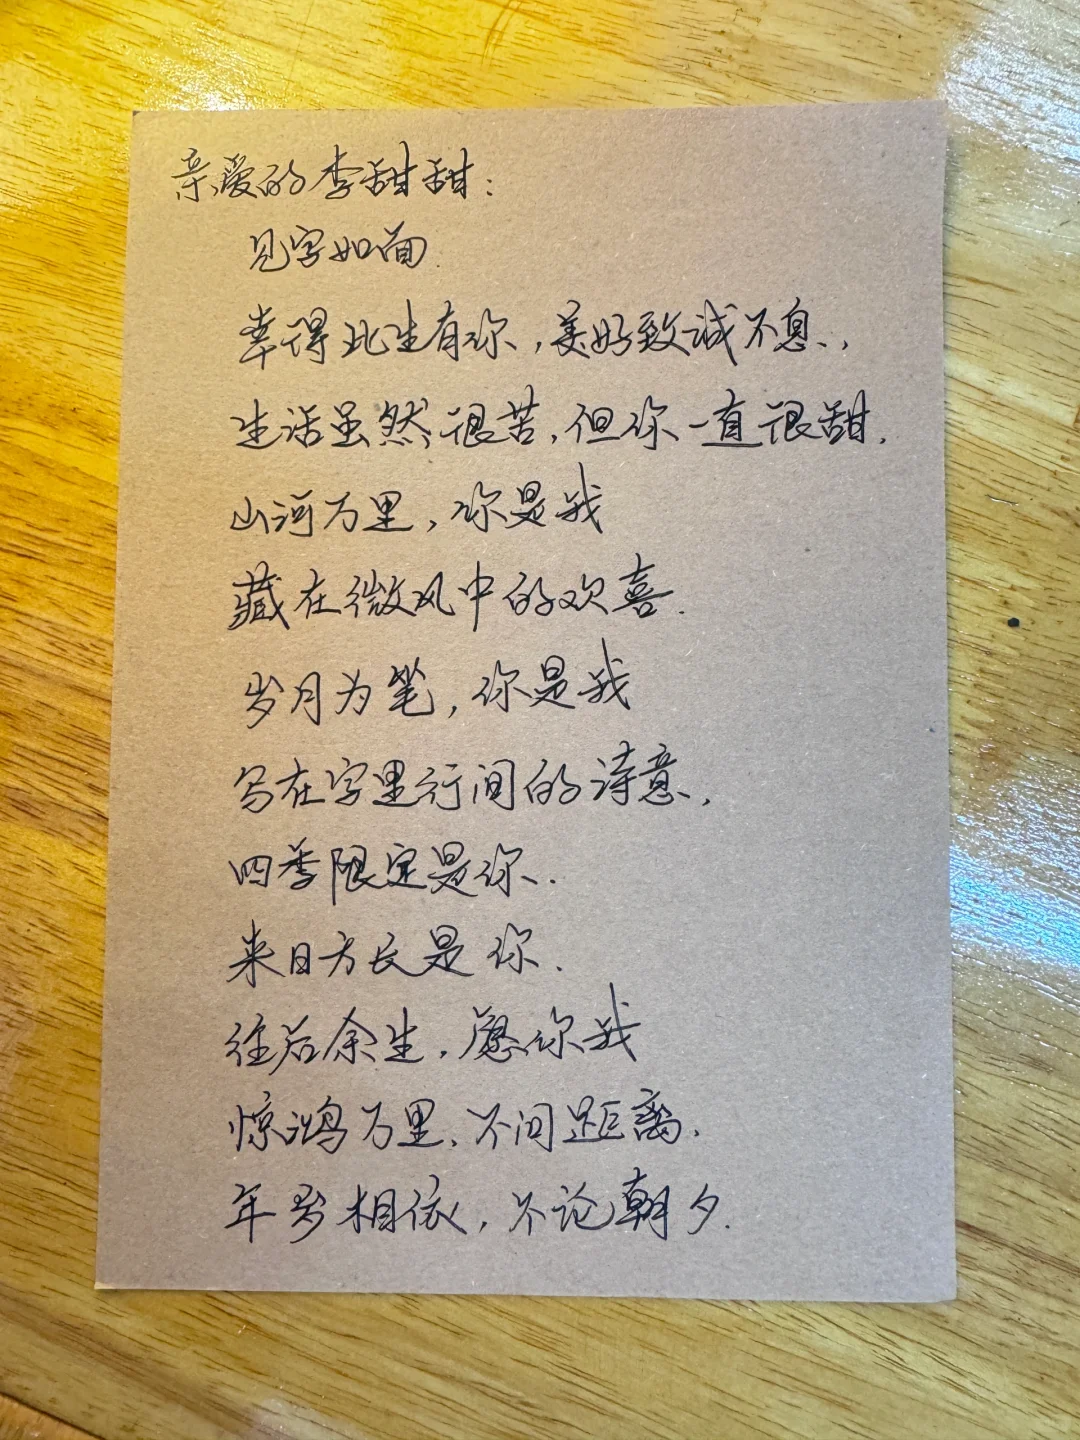 亲爱的李甜甜:
见字如面.
幸得此生有你,美好致诚不息,
生活虽然很苦,但你一直很甜.
山河万里,你是我
藏在微风中的欢喜.
岁月为笔,你是我
写在字里行间的诗意,
四季限定是你.
来日方长是你.
往后余生,愿你我
惊鸿万里,不问距离.
年岁相依,不论朝夕.